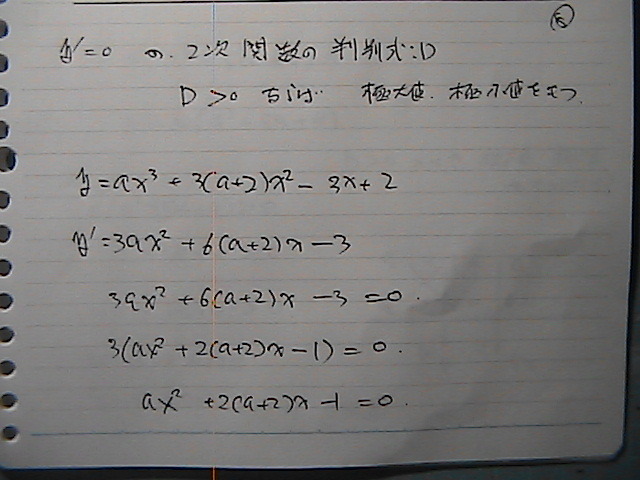 y'=0 の 2次関数の判別式:D
D>0 ならば 極大値、極小値をもつ
y=ax³+3(a+2)x²-3x+2
y'=3ax²+6(a+2)x-3
3ax²+6(a+2)x-3=0.
3(ax²+2(a+2)x-1)=0.
ax²+2(a+2)x-1=0.